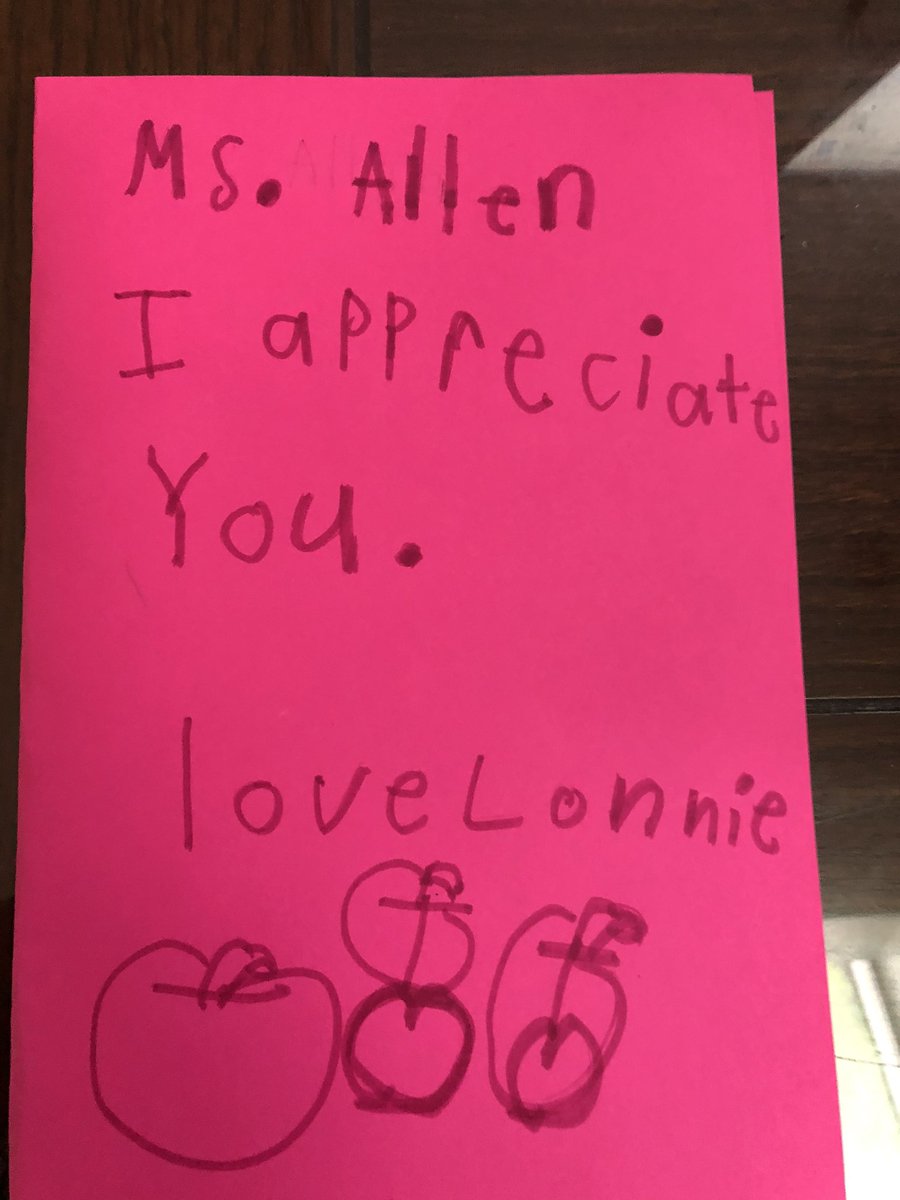 Ms. Allen
I appreciate
You.
love Lonnie